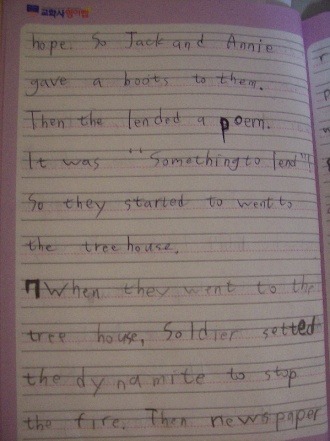 hope. So Jack and Annie
gave a boots to them.
Then the lended a poem.
It was "Something to lend"!
So they started to went to
the tree house.
7 When they went to the
tree house, Soldier setted
the dynamite to stop
the fire. Then newspaper